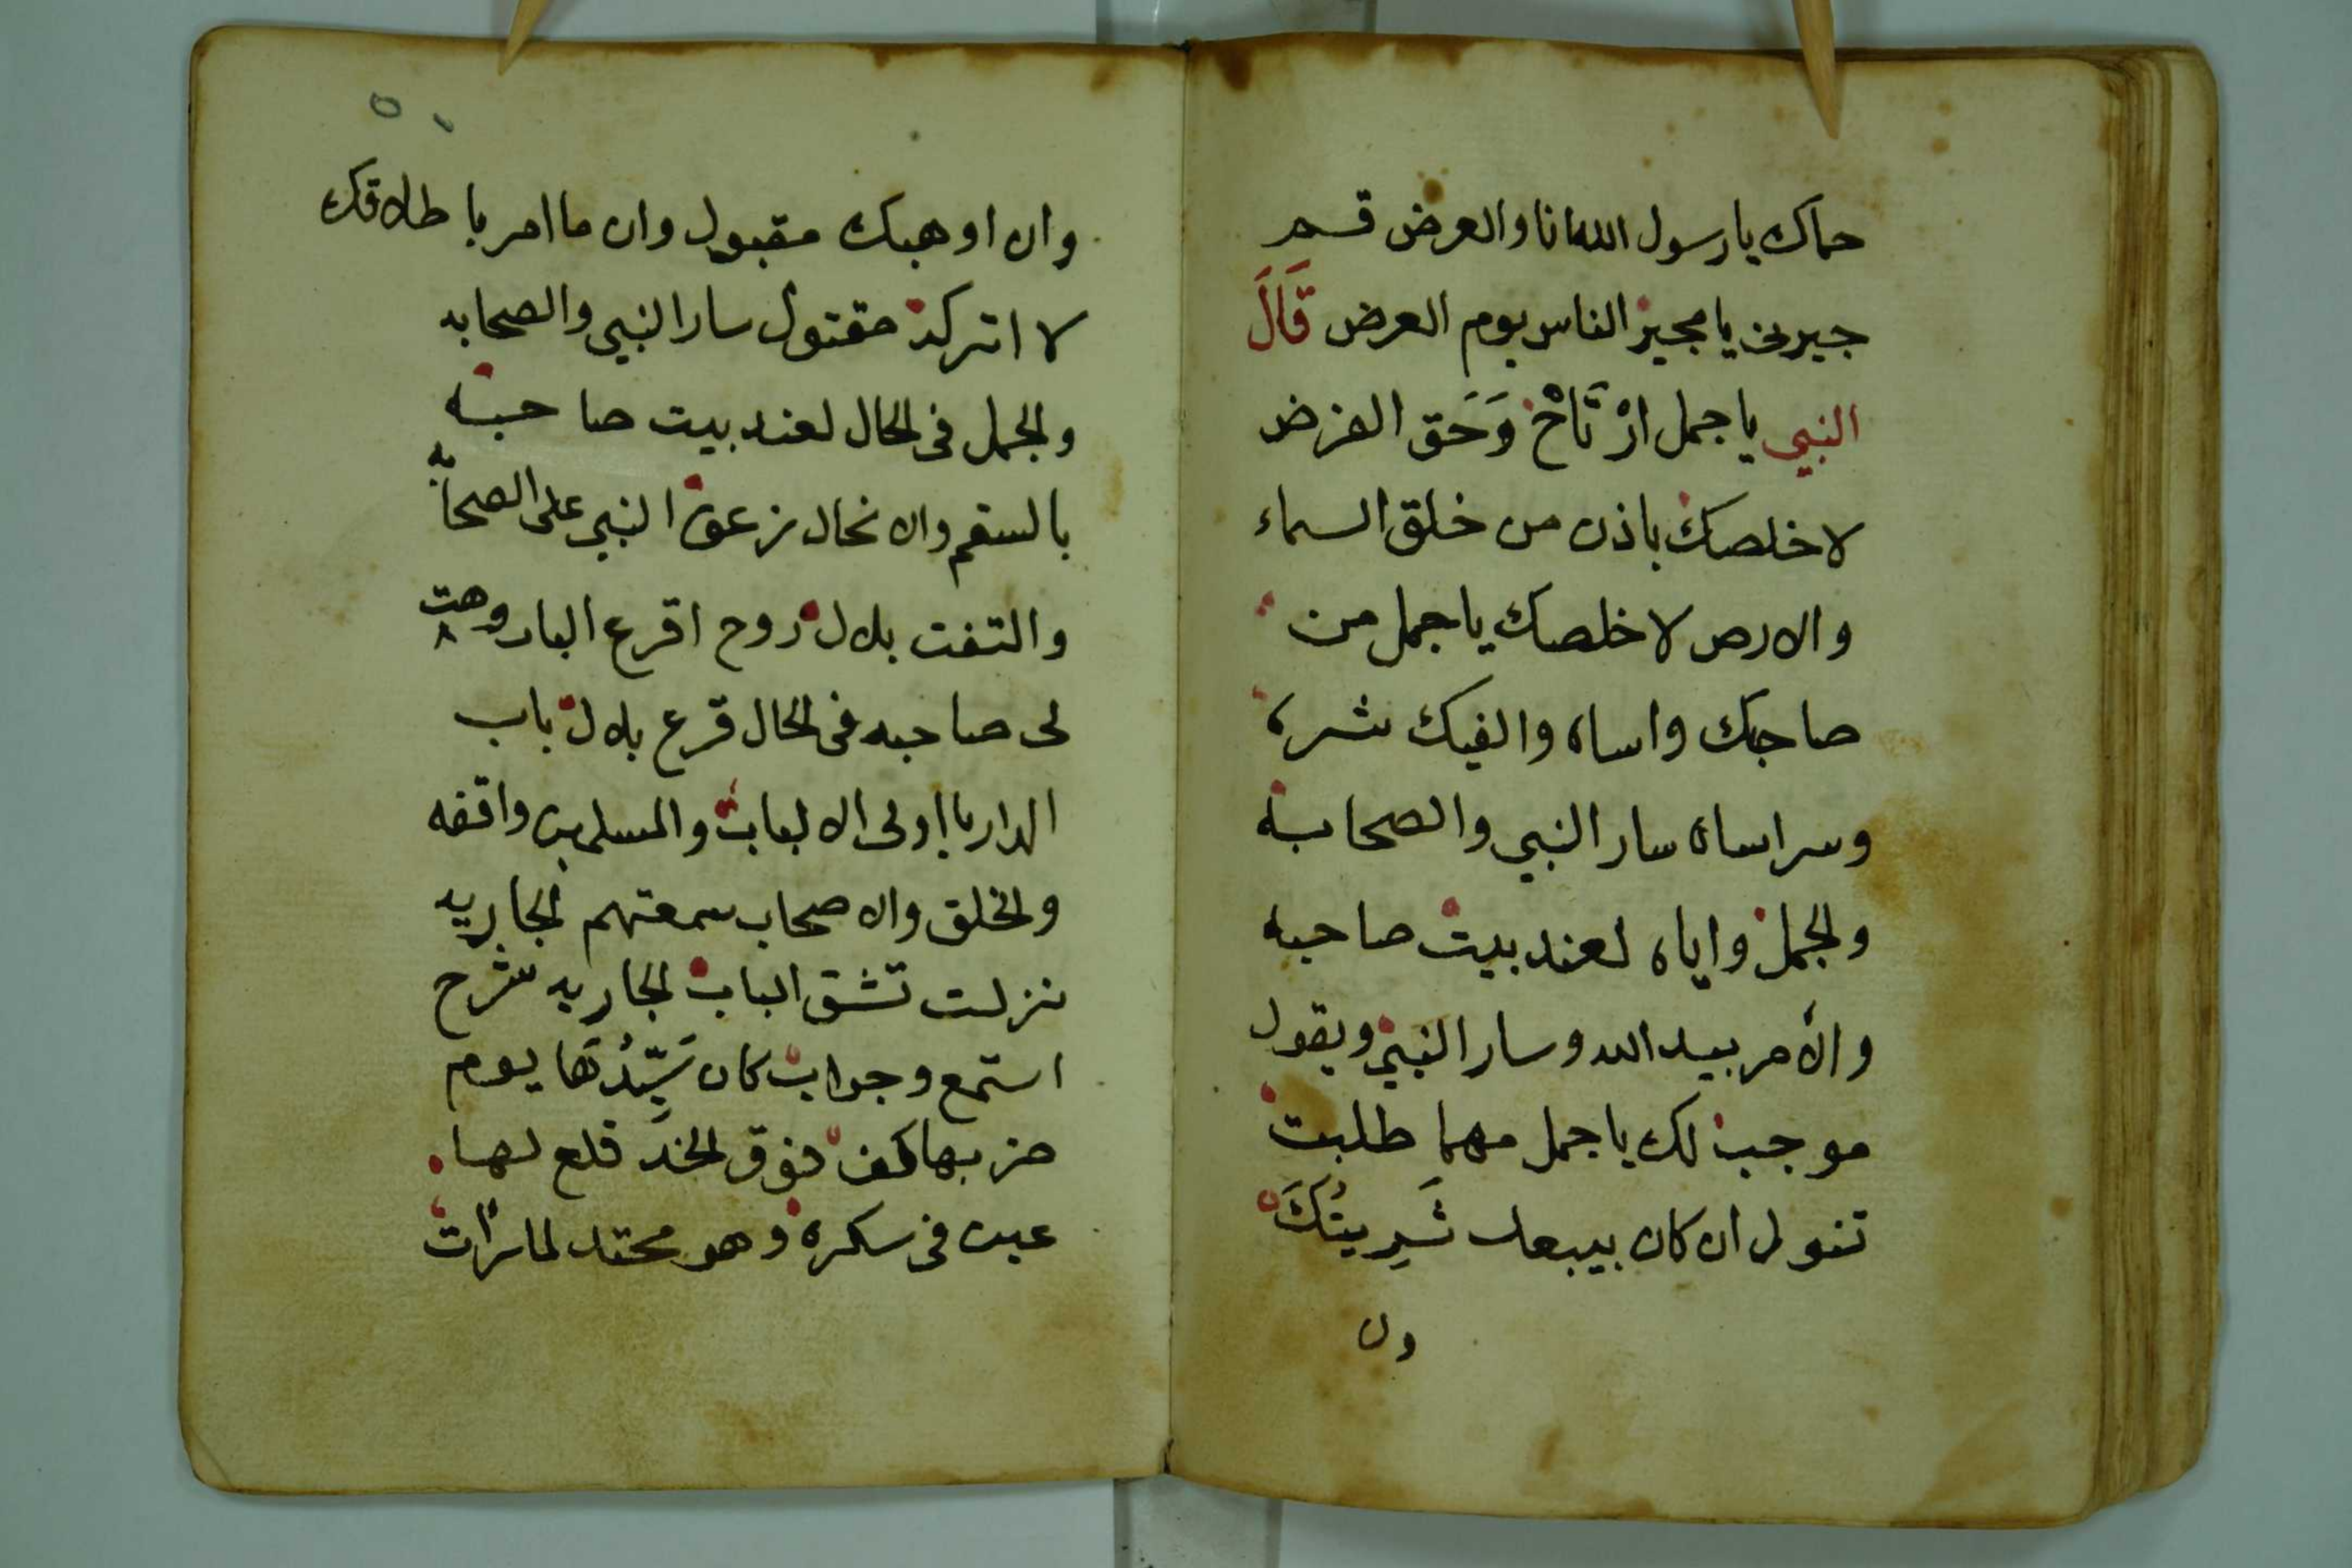 حماك يا رسول الله انا والعرض قسم
جيرنى يا مجير الناس يوم العرض قَالَ
النبي يا جمل ارْتَاحْ وَحَق الفرض
لاخلصك باذن من خلق السماء
والارض لاخلصك يا جمل من
صاحبك واساه والفيك شره
وسر اساه سار النبي والصحابه
والجمل واياه لعند بيت صاحبه
والأمر بيد الله وسار النبي ويقول
موجب لك يا جمل مهما طلبت
تنول ان كان يبيعك شَرِيتُكَ
وان
وان اوهبك مقبول وان ما امر باطلاقك
لا اتركه مقتول سار النبي والصحابه
والجمل فى الحال لعند بيت صاحبه
بالسقم والانحال زعق النبي على الصحابه
والتفت بلال روح اقرع الباب وهت
لى صاحبه فى الحال قرع بلال باب
الدار يا اولى الالباب والمسلمين واقفه
والخلق والاصحاب سمعتهم الجاريه
نزلت تشق الباب الجاريه شرح
استمع وجواب كان سَيِّدُهَا يوم
ضربها كف فوق الخد قلع لها
عين فى سكره وهو محتد
٥٠